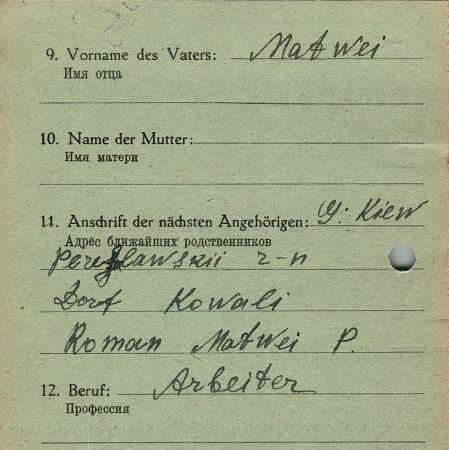 9. Vorname des Vaters: Matwei
Имя отца
10. Name der Mutter:
Имя матери
11. Anschrift der nächsten Angehörigen: G: Kiew
Адрес ближайших родственников
Pereslawskii r-n
Dorf Kowali
Roman Matwei P.
12. Beruf: Arbeiter
Профессия